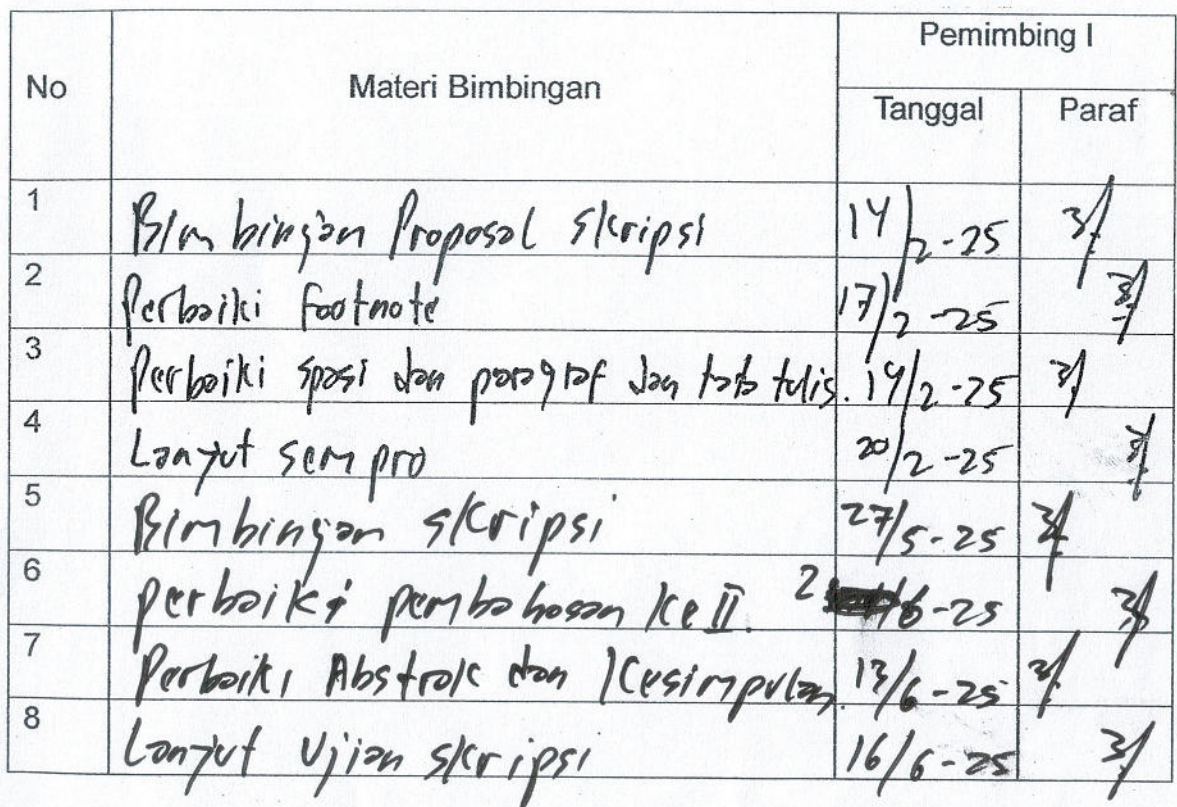 No Materi Bimbingan Pemimbing I
Tanggal Paraf
1 Bimbingan Proposal skripsi 14/2-25
2 Perbaiki footnote 17/2-25
3 Perbaiki spasi dan paragraf dan tata tulis. 19/2-25
4 Lanjut sempro 20/2-25
5 Bimbingan skripsi 27/5-25
6 perbaiki pembahasan Ke II. 2/6-25
7 Perbaiki Abstrak dan Kesimpulan. 13/6-25
8 Lanjut Ujian skripsi 16/6-25